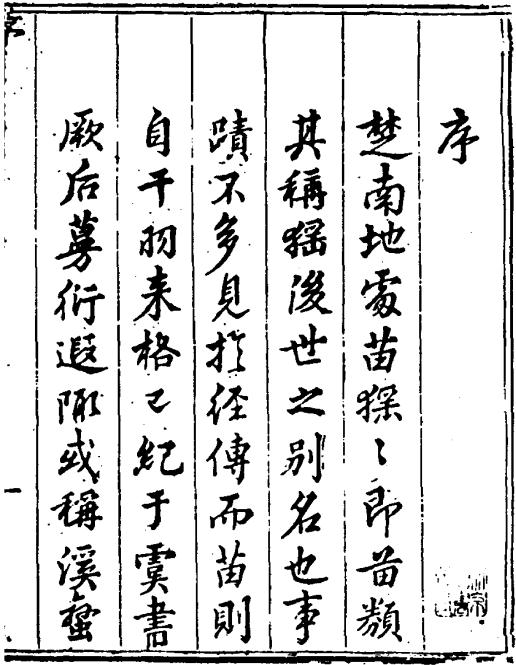 序
楚南地處苗猺〻即苗類
其稱猺後世之别名也事
蹟不多見於経傳而苗則
自干羽来格已紀于虞書
厥后蔓衍遐陬或稱溪蠻
一